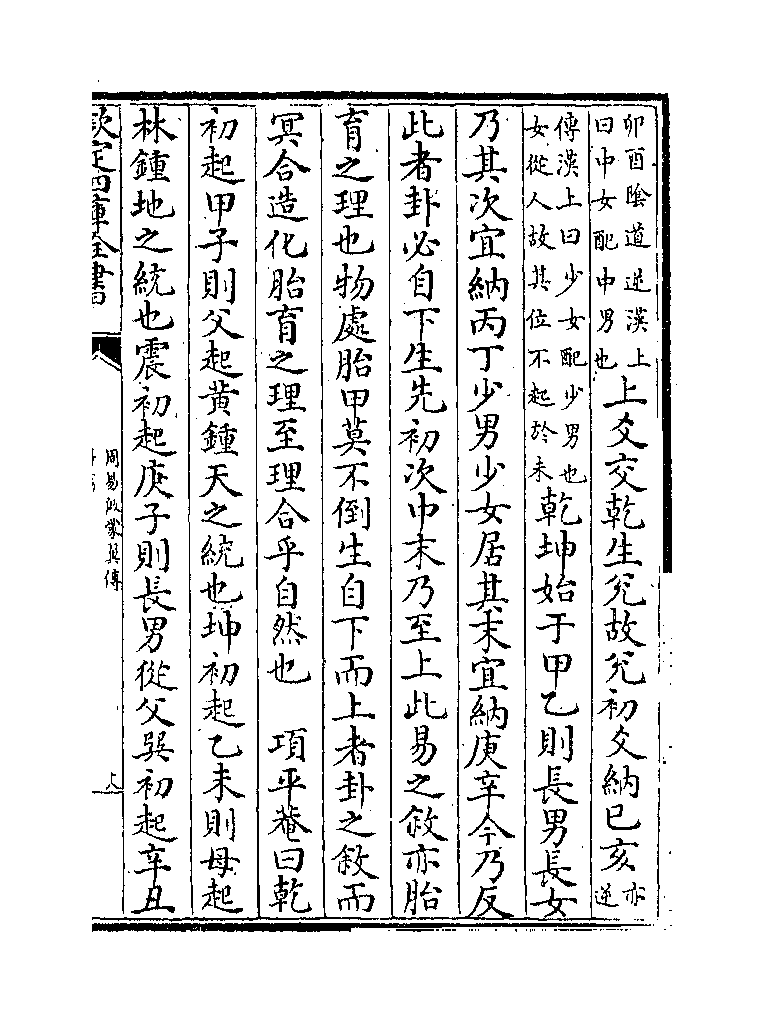 卯酉陰道逆漢上曰中女配中男也上爻交乾生兌故兌初爻納巳亥亦逆
傳漢上曰少女配少男也女從人故其位不起於未乾坤始于甲乙則長男長女
乃其次宜納丙丁少男少女居其末宜納庚辛今乃反
此者卦必自下生先初次中末乃至上此易之敘亦胎
育之理也物處胎甲莫不倒生自下而上者卦之敘而
冥合造化胎育之理至理合乎自然也 項平菴曰乾
初起甲子則父起黃鍾天之統也坤初起乙未則母起
林鍾地之統也震初起庚子則長男從父巽初起辛丑
欽定四庫全書
周易啟蒙翼傳